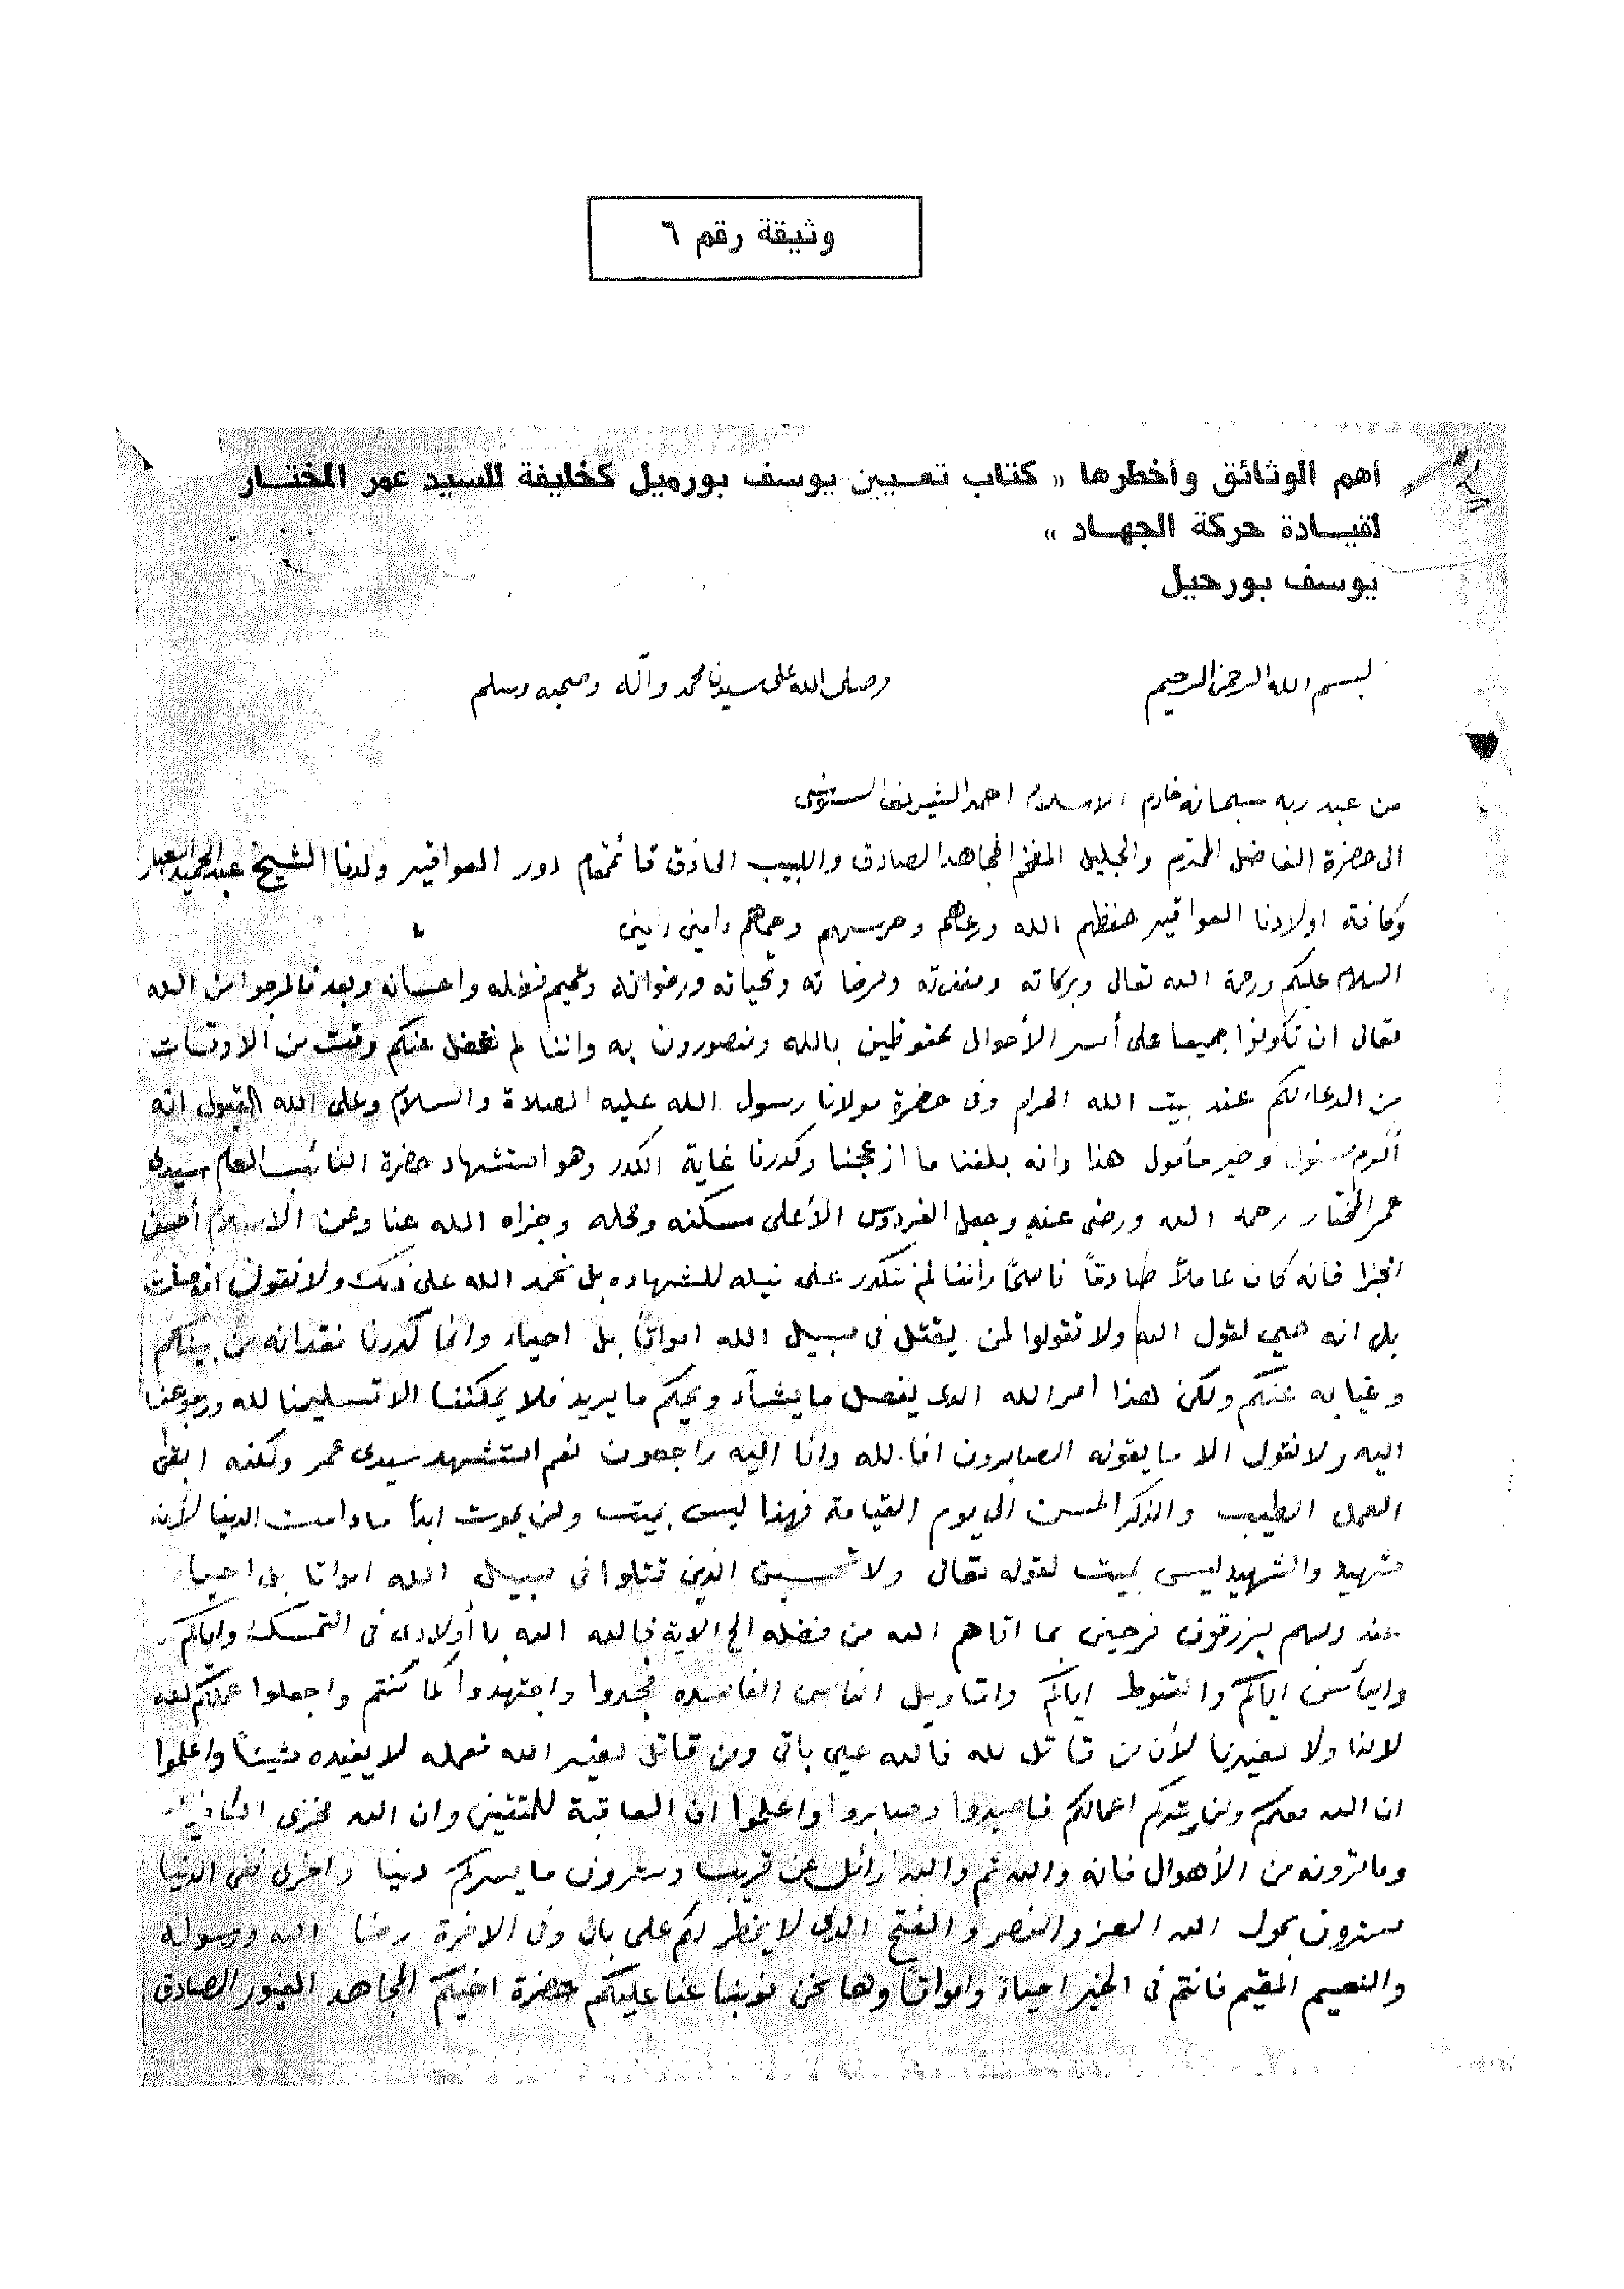 وثيقة رقم ٦
أهم الوثائق وأخطرها « كتاب تعيين يوسف بورحيل كخليفة للسيد عمر المختار
لقيادة حركة الجهاد »
يوسف بورحيل
بسم الله الرحمن الرحيم
وصلى الله على سيدنا محمد وآله وصحبه وسلم
من عبد ربه سبحانه خادم الاسلام احمد الشريف السنوسي
الى حضرة الفاضل المحترم والجليل المفخم المجاهد الصادق واللبيب الحاذق قائمقام دور العواقير ولدنا الشيخ عبد الحميد العبار
وكافة اولادنا العواقير حفظهم الله ورعاهم وحرسهم وحماهم امين امين
السلام عليكم ورحمة الله تعالى وبركاته ومغفرته ومرضاته وتحياته ورضوانه وعميم فضله واحسانه وبعد فالمرجو من الله
تعالى ان تكونوا جميعا على أسر الأحوال محفوظين بالله ومنصورون به واننا لم نغفل عنكم وقت من الاوقات
من الدعاء لكم عند بيت الله الحرام وفى حضرة مولانا رسول الله عليه الصلاة والسلام وعلى الله القبول انه
أكرم مسئول وخير مأمول هذا وانه بلغنا ما ازعجنا وكدرنا غاية الكدر وهو استشهاد حضرة النائب العام سيدى
عمر المختار رحمه الله ورضى عنه وجعل الفردوس الأعلى مسكنه ومحله وجزاه الله عنا وعن الاسلام أحسن
الجزا فانه كان عاملاً صادقاً ناصحاً واننا لم نتكدر على نيله للشهاده بل نحمد الله على ذلك ولا نقول انه مات
بل انه حي لقول الله ولا تقولوا لمن يقتل فى سبيل الله امواتاً بل احياء وانما كدرنا فقدانه من بينكم
وغيابه عنكم ولكن هذا امر الله الذى يفعل ما يشاء ويحكم ما يريد فلا يمكننا الا تسليمنا لله ورجوعنا
اليه ولا نقول الا ما يقوله الصابرون انا لله وانا اليه راجعون نعم استشهد سيدى عمر ولكنه ابقى
العمل الطيب والذكر الحسن الى يوم القيامة فهذا ليس بميت ولن يموت ابداً ما دامت الدنيا لأنه
شهيد والشهيد ليس بميت لقوله تعالى ولا تحسبن الذين قتلوا فى سبيل الله امواتا بل احياء
عند ربهم يرزقون فرحين بما اتاهم الله من فضله الخ الاية فالله الله يا أولادى فى التمسك واياكم
واليأس اياكم والقنوط اياكم واتاويل الناس الفاسده فجدوا واجتهدوا كما كنتم واجعلوا عملكم لله
لا لنا ولا لغيرنا لأن من قاتل لله فالله حي باقى ومن قاتل لغير الله فعمله لا يفيده شيئاً واعلموا
ان الله معكم ولن يتركم اعمالكم فاصبروا وصابروا واعلموا ان العاقبة للمتقين وان الله مخزى الكافرين
وما ترونه من الأهوال فانه والله ثم والله زائل عن قريب وسترون ما يسركم دينا واخرى ففى الدنيا
سترون بحول الله العز والنصر والفتح الذى لا يخطر لكم على بال وفى الاخرة رضا الله ورسوله
والنعيم المقيم فانتم فى الخير احياءً وامواتاً وها نحن نوبنا عنا عليكم حضرة اخيكم المجاهد الغيور الصادق